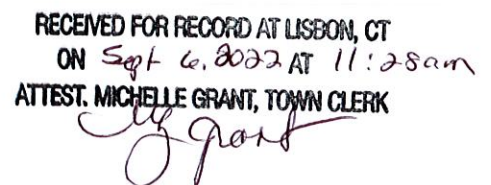 RECEIVED FOR RECORD AT LISBON, CT
ON Sept 6, 2022 AT 11:28am
ATTEST. MICHELLE GRANT, TOWN CLERK
Mgrant